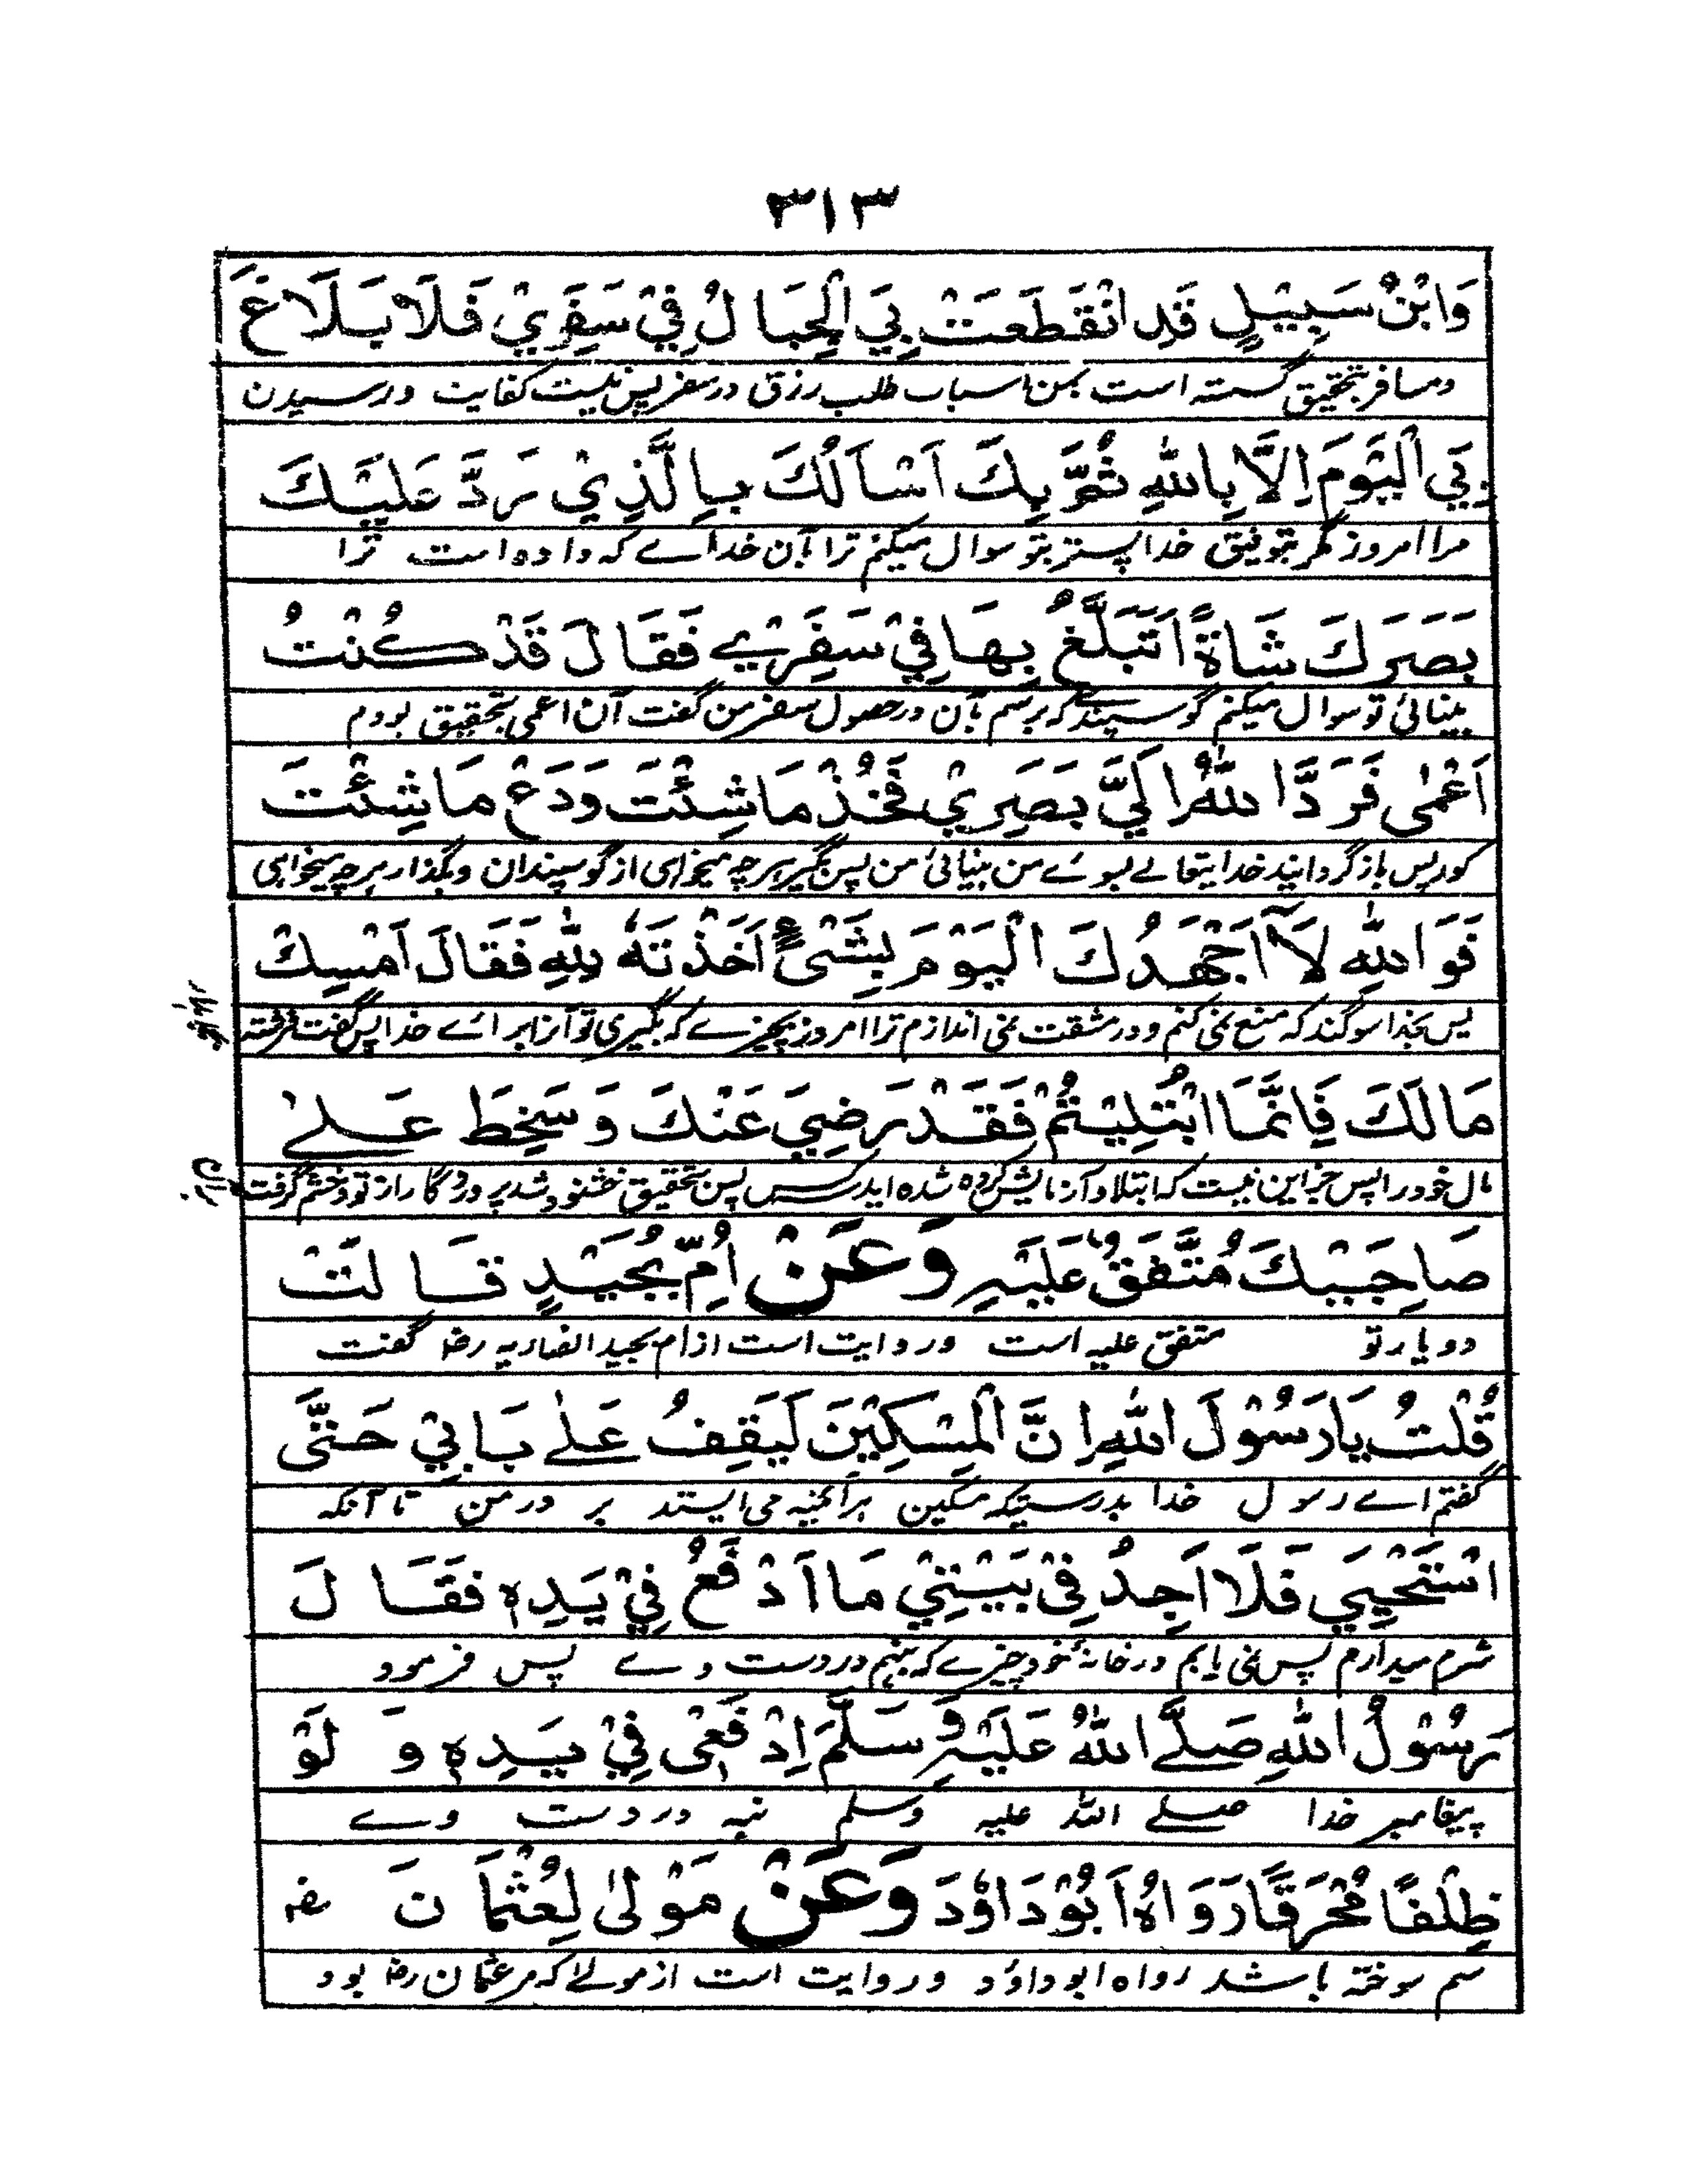 ٣١٣
وَابْنُ سَبِيْلٍ قَدِ انْقَطَعَتْ بِيَ الْحِبَالُ فِيْ سَفَرِيْ فَلَا بَلَاغَ
ومسافر بتحقیق گسسته است بمن اسباب طلب رزق در سفر پس نیست کفایت ورسیدن
بِيَ الْيَوْمَ اِلَّا بِاللّٰهِ ثُمَّ بِكَ اَسْاَلُكَ بِالَّذِيْ رَدَّ عَلَيْكَ
مرا امروز مگر بتوفیق خدا پستر بتو سوال میکنم ترا بآن خداے که داده است ترا
بَصَرَكَ شَاةً اَتَبَلَّغُ بِهَا فِيْ سَفَرِيْ فَقَالَ قَدْ كُنْتُ
بینائی تو سوال میکنم گوسپندے که برسم بآن در حصول سفر من گفت آن اعمی بتحقیق بودم
اَعْمٰى فَرَدَّ اللّٰهُ اِلَيَّ بَصَرِيْ فَخُذْ مَا شِئْتَ وَدَعْ مَا شِئْتَ
کور پس باز گردانید خدایتعالے بسوے من بینائی من پس بگیر هرچه میخواهی از گوسپندان وبگذار هرچه میخواهی
فَوَاللّٰهِ لَآ اَجْهَدُكَ الْيَوْمَ بِشَىْءٍ اَخَذْتَهٗ لِلّٰهِ فَقَالَ اَمْسِكْ
پس بخدا سوگند که منع نمی کنم ودر مشقت نمی اندازم ترا امروز بچیزے که بگیری تو آنرا براے خدا پس گفت فرشته
مَالَكَ فَاِنَّمَا ابْتُلِيْتُمْ فَقَدْ رَضِيَ عَنْكَ وَسَخِطَ عَلٰے
مال خود را پس جز این نیست که ابتلا و آزمایش کرده شده اید پس بتحقیق خشنود شد پروردگار از تو وخشم گرفت
صَاحِبَيْكَ مُتَّفَقٌ عَلَيْهِ وَعَنْ اُمِّ بُجَيْدٍ قَالَتْ
دو یار تو متفق علیه است وروایت است از ام بجید انصاریه رضـ گفت
قُلْتُ يَا رَسُوْلَ اللّٰهِ اِنَّ الْمِسْكِيْنَ لَيَقِفُ عَلٰے بَابِيْ حَتّٰى
گفتم اے رسول خدا بدرستیکه مسکین هرآئینه می ایستد بر در من تا آنکه
اسْتَحْيِيَ فَلَا اَجِدُ فِيْ بَيْتِيْ مَا اَدْفَعُ فِيْ يَدِهٖ فَقَالَ
شرم میدارم پس نمی یابم در خانۂ خود چیزے که بنهم در دست وے پس فرمود
رَسُوْلُ اللّٰهِ صَلَّے اللّٰهُ عَلَيْهِ وَسَلَّمَ اِدْفَعِىْ فِيْ يَدِهٖ وَلَوْ
پیغامبر خدا صلے الله علیه وسلم بنه در دست وے
ظِلْفًا مُحْرَقًا رَوَاهُ اَبُوْ دَاوٗدَ وَعَنْ مَوْلٰى لِعُثْمَانَ رضـ
سم سوخته باشد رواه ابوداؤد وروایت است از مولاے که مر عثمان رضـ بود